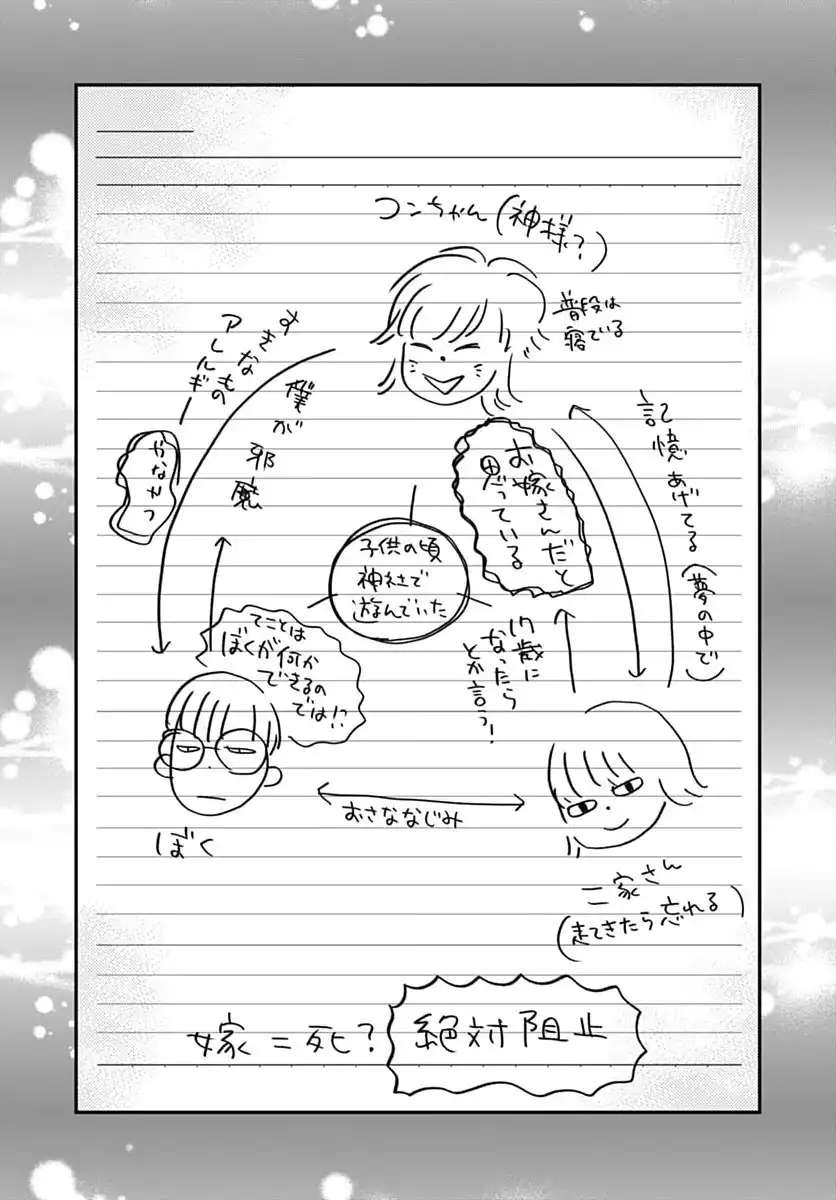 コンちゃん(神様?)
普段は
寝ている
すきなもの
アレルギー
僕が邪魔
やなやつ
お嫁さんだと
思っている
記憶あげてる(夢の中で)
子供の頃
神社で
遊んでいた
てことは
ぼくが何か
できるの
では!?
17歳に
なったら
とか言う!
おさななじみ
ぼく
二家さん
(起きてきたら忘れる)
嫁=死?
絶対阻止